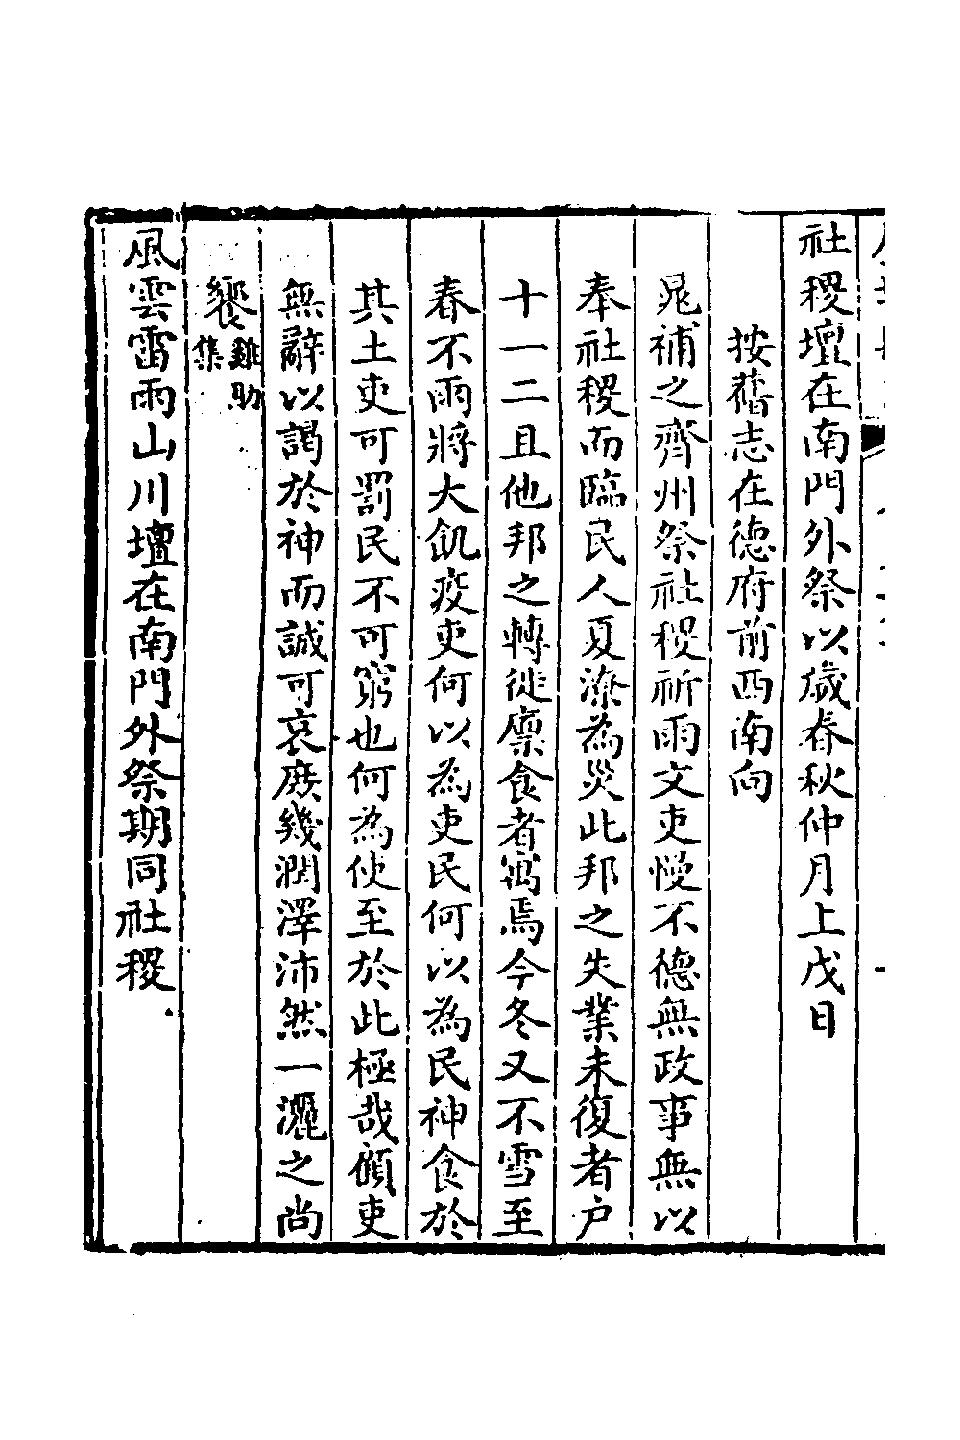 社稷壇在南門外祭以歲春秋仲月上戊日
按舊志在德府前西南向
晁補之齊州祭社稷祈雨文吏慢不德無政事無以
奉社稷而臨民人夏潦為災此邦之失業未復者户
十一二且他邦之轉徙廪食者寓焉今冬又不雪至
春不雨將大飢疫吏何以為吏民何以為民神食於
其土吏可罰民不可窮也何為使至於此極哉顧吏
無辭以謁於神而誠可哀庶幾潤澤沛然一灑之尚
饗雞肋集
風雲雷雨山川壇在南門外祭期同社稷